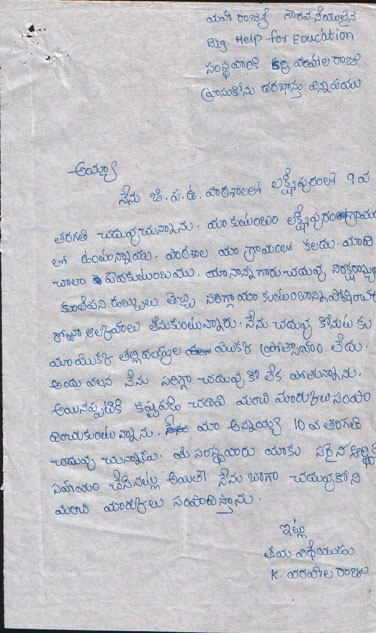 మహా రాజశ్రీ గౌరవనీయులైన
Big Help for Education
సంస్థవారికి కర్రి వరహాల రాజు
వ్రాసుకొను దరఖాస్తు విన్నపము
అయ్యా
నేను జి.ప.ఉ. పాఠశాలలో లక్ష్మీపురంలో 9వ
తరగతి చదువుచున్నాను. మా కుటుంబం లక్ష్మీపురం గ్రామం
లో ఉంటున్నాము. పాఠశాల మా గ్రామంలో కలదు. మాది
చాలా పేదకుటుంబము. మా నాన్నగారు చదువు
కూలిపని డబ్బులు తెచ్చి సరిగ్గా మా కుటుంబాన్ని
రోజూ తెచుకుంటున్నారు. నేను చదువు కోవుట కు
మా యొక్క తల్లిదండ్రుల యొక్క ప్రోత్సాహం లేదు.
అందు వలన నేను సరిగ్గా చదువు కో లేక పోతున్నాను.
అయినప్పటికి కష్టపడి చదివి మంచి మార్కులు సంపా
దించుకుంటున్నాను. మా అన్నయ్య 10వ తరగతి
చదువు చున్నాడు. మీ సంస్థవారు మాకు సరైన ఆర్థిక
సహాయం చేసినట్లు అయితే నేను బాగా చదువుకొని
మంచి మార్కులు సంపాదిస్తాను.
ఇట్లు
తమ విధేయుడు
K. వరహాల రాజు